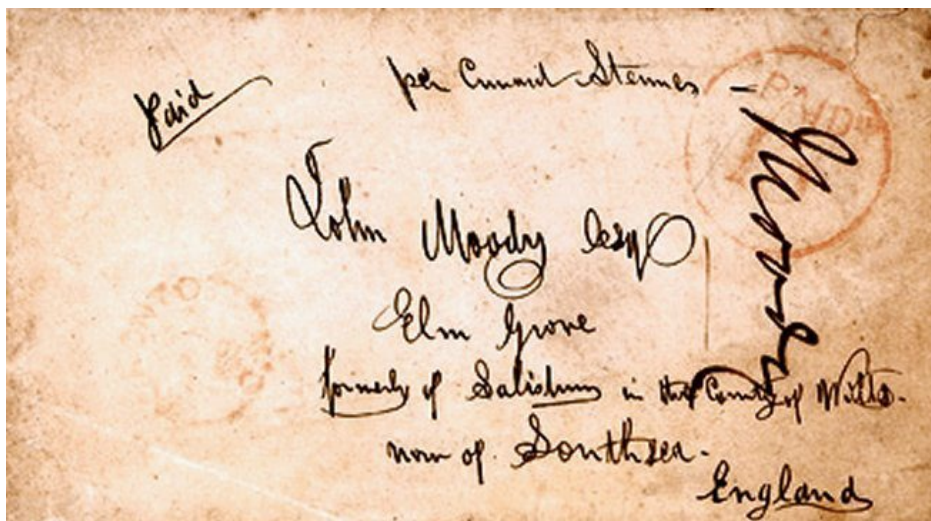 Paid
per Cunard Steamer -
PAID
John Moody Esq
Elm Grove
formerly of Salisbury in the County of Wilts.
now of Southsea.
England